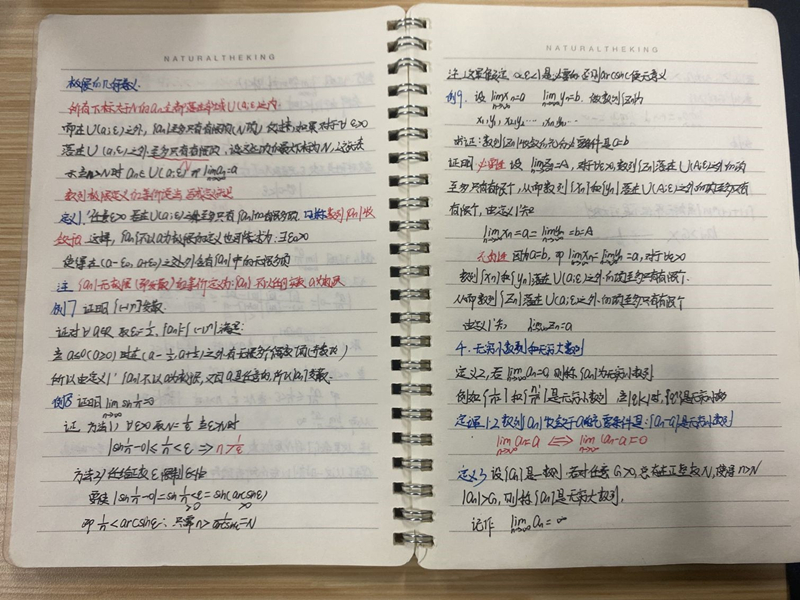 NATURALTHEKING
极限的几何意义.
所有下标大于N的aₙ全都落在邻域U(a;ε)之内
而在U(a;ε)之外, {aₙ}至多只有有限(N项) 反过来, 如果对于∀ε>0
落在U(a;ε)之外至多只有有限项, 设这些项的最大下标为N,
当n>N时 aₙ∈U(a;ε) 即 lim aₙ=a
n→∞
数列极限定义的等价定义
定义1' 任意ε>0 若在U(a;ε)之外至多只有{aₙ}的有限项, 则称数列{aₙ}收
敛于a 这样, {aₙ}不以a为极限的定义也可叙述为: ∃ε₀>0
使得在(a-ε₀, a+ε₀)之外含有{aₙ}中的无限多项
注 {aₙ}无极限(即发散)的等价定义为: {aₙ}不以任何实数a为极限
例7 证明{(-1)ⁿ}发散.
证对∀a
满足:
当a≤0(a≥0)时在(a-½, a+½)之外有无限多个偶数项(奇数项)
所以由定义1' {aₙ}不以a为极限, 又因a是任意的, 所以{aₙ}发散.
例8 证明 lim sin 1/n=0
n→∞
证. 方法1) ∀ε>0 取N=1/ε 当n>N时
|sin 1/n-0|≤1/n<ε ⟹ n>1/ε
方法2) 任给正数ε
要使 |sin 1/n-0|=sin 1/n<ε=sin(arcsinε)
>0 >0
即 1/n<arcsinε: 只需n>1/arcsinε=N
NATURALTHEKING
注 这里假定 0<ε<1是必要的 否则arcsinε没意义
例9. 设 lim xₙ=a lim yₙ=b. 做数列{Zₙ}
n→∞ n→∞
x₁, y₁, x₂, y₂, … xₙ, yₙ…
求证: 数列{Zₙ}收敛的充分必要条件是a=b
证明 必要性 设 lim Zₙ=A, 对于∀ε>0, 数列{Zₙ}落在U(A;ε)之外的项
至多只有有限个, 从而数列{xₙ}和{yₙ}落在U(A;ε)之外的项至多只有
有限个, 由定义1'知
lim xₙ=a=lim yₙ=b=A
n→∞ n→∞
充分性 因为a=b, 即 lim xₙ=lim yₙ=a, 对于∀ε>0
数列{xₙ}和{yₙ}落在U(a;ε)之外的项至多只有有限个.
从而数列{Zₙ}落在U(a;ε)之外的项至多只有有限个
由定义1'知 lim Zₙ=a
n→∞
4. 无穷小数列和无穷大数列
定义2, 若 lim aₙ=0 则称{aₙ}为无穷小数列
n→∞
是无穷小数列
定理1.2 数列{aₙ}收敛于a的充要条件是: {aₙ-a}是无穷小数列
lim aₙ=a ⟺ lim (aₙ-a)=0
n→∞ n→∞
定义3 设{aₙ}是一数列. 若对任意G>0, 总存在正整数N, 使得n>N
|aₙ|>G, 则称{aₙ}是无穷大数列.
记作 lim aₙ=∞
n→∞